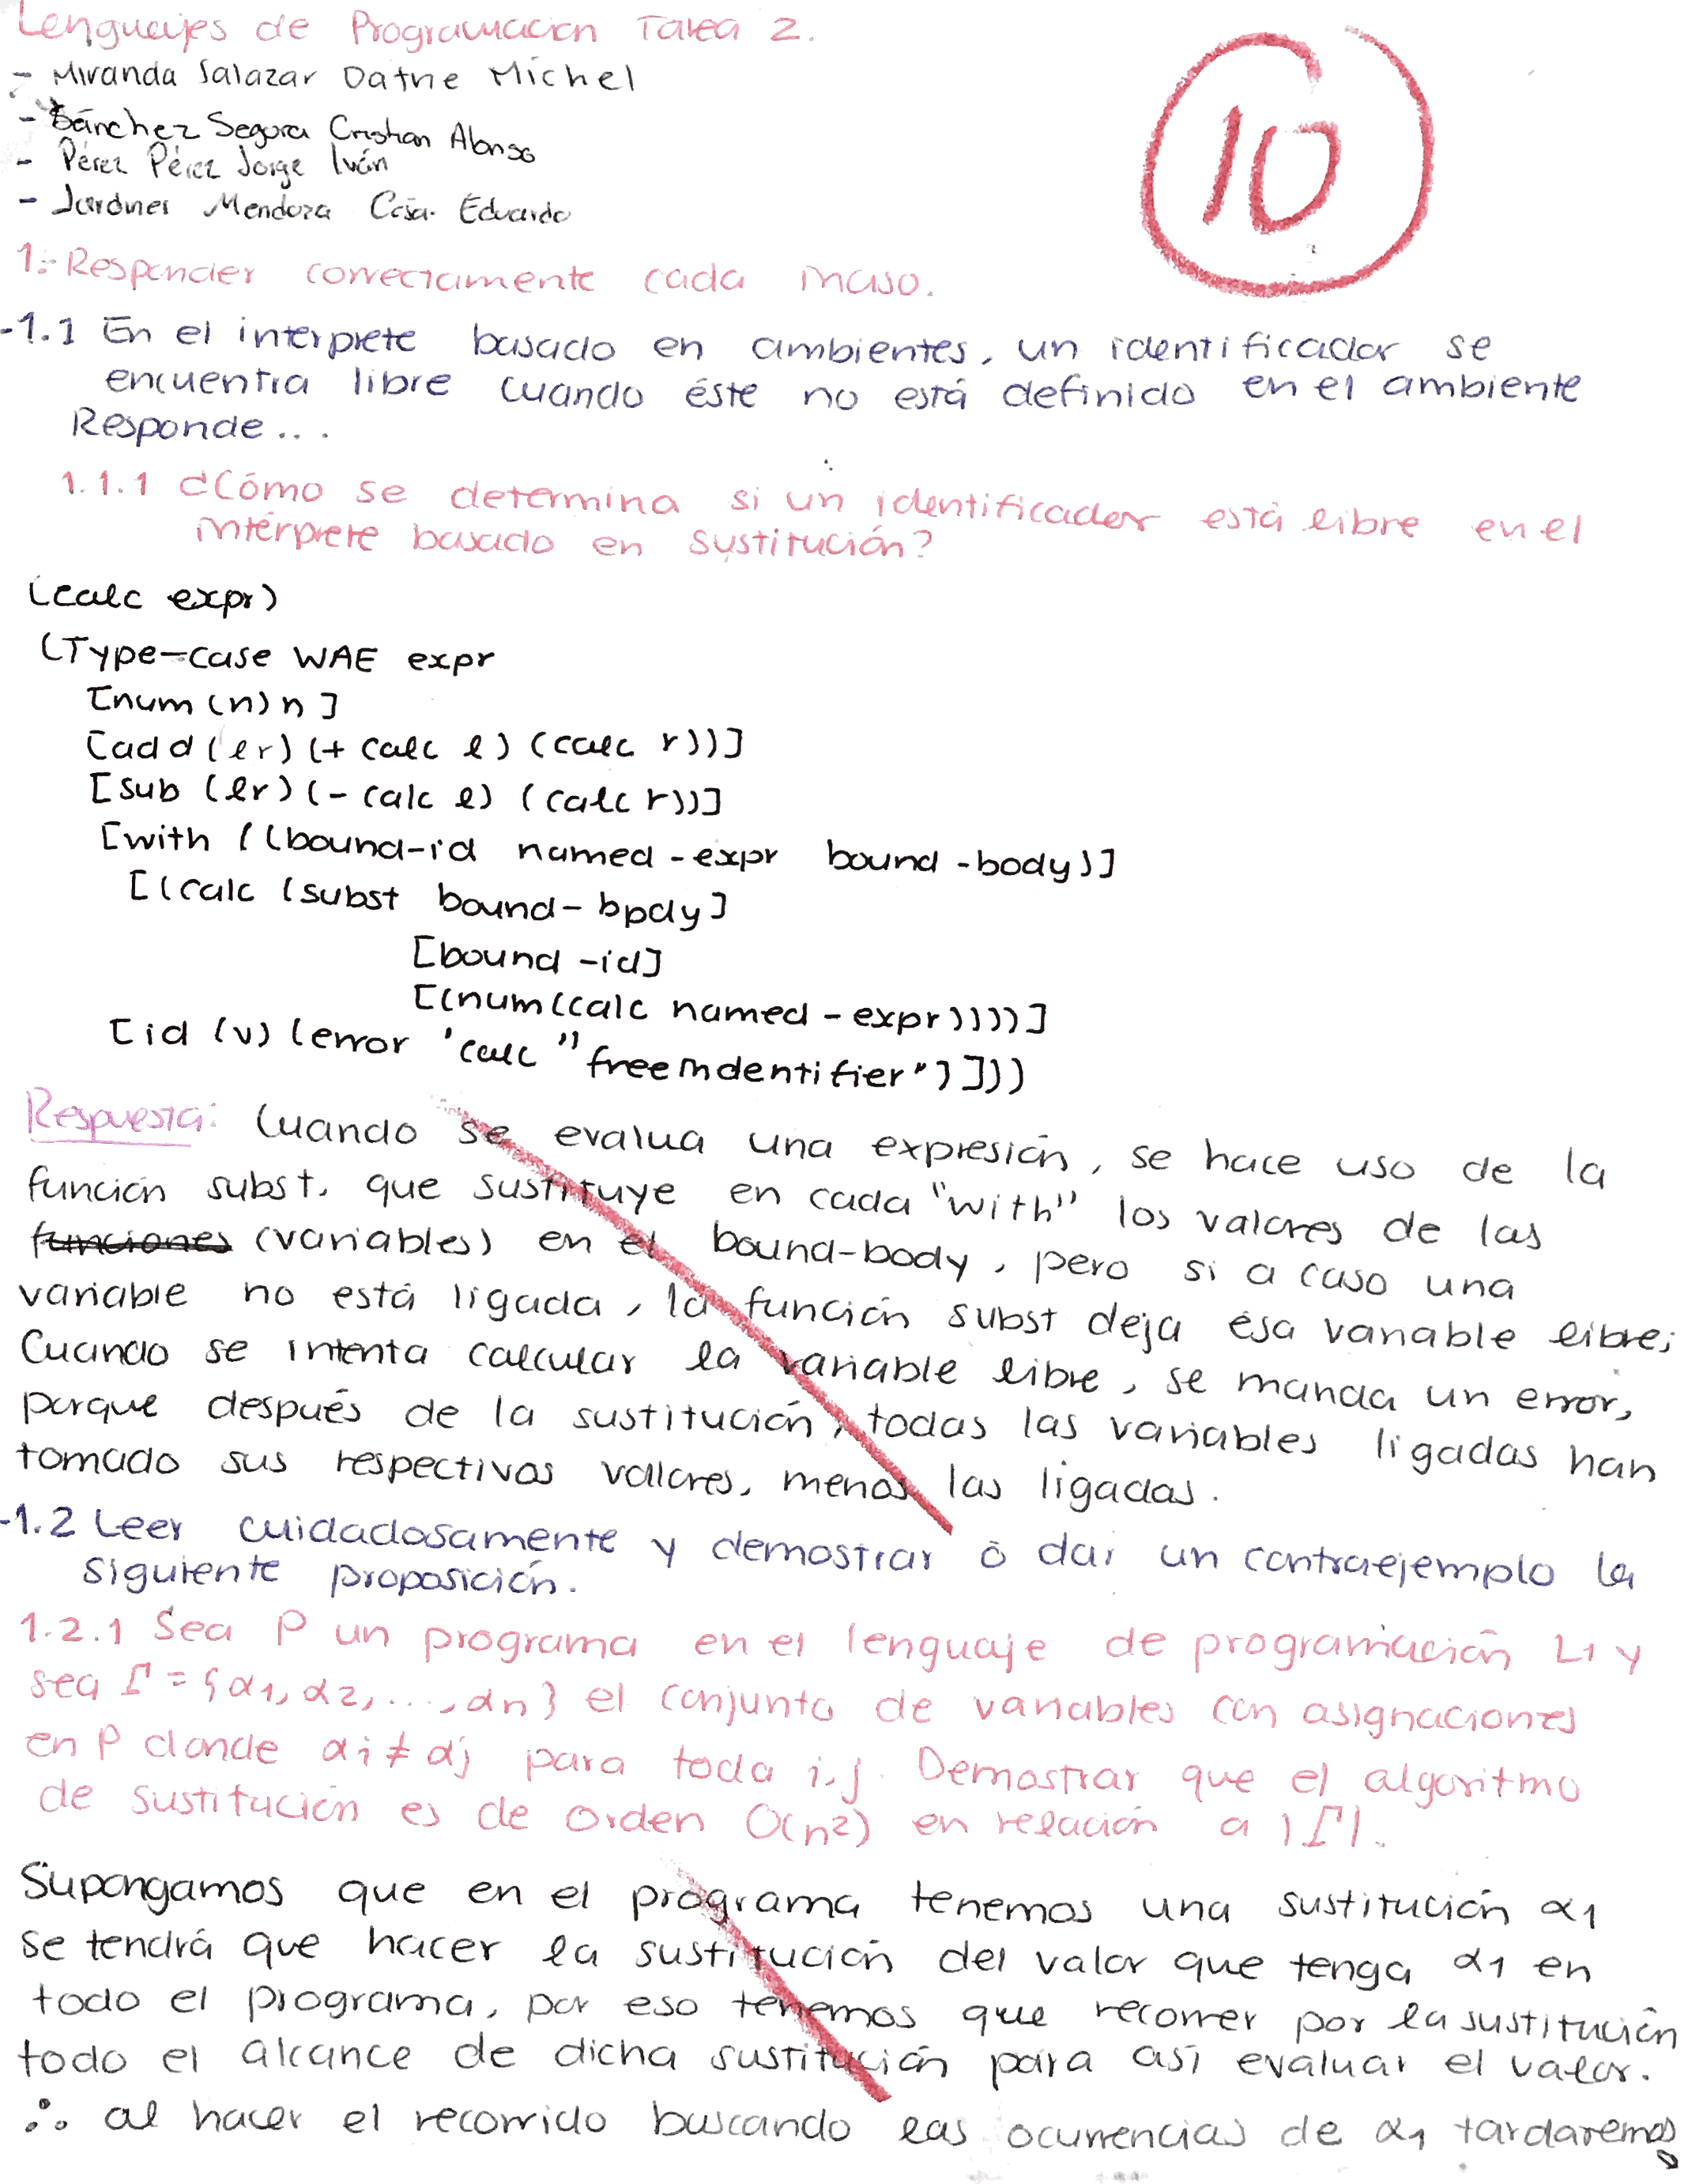 Lenguajes de Programación Tarea 2.
- Miranda Salazar Dafne Michel
- Sánchez Segura Cristian Alonso
- Pérez Pérez Jorge Iván
- Mendoza Eduardo
10
1.- Responder correctamente cada inciso.
-1.1 En el interprete basado en ambientes, un identificador se
encuentra libre cuando éste no está definido en el ambiente
Responde...
1.1.1 ¿Cómo se determina si un identificador está libre en el
intérprete basado en sustitución?
(calc expr)
(Type-case WAE expr
[num (n) n]
[add (l r) (+ calc l) (calc r))]
[sub (l r) (- calc l) (calc r))]
[with ((bound-id named-expr bound-body)]
[(calc (subst bound-bpdy]
[bound-id]
[(num(calc named-expr))))]
[id (v) (error 'calc "free indentifier")]))
Respuesta: Cuando se evalua una expresión, se hace uso de la
función subst, que sustituye en cada "with" los valores de las
funciones (variables) en el bound-body, pero si a caso una
variable no está ligada, la función subst deja ésa variable libre;
Cuando se intenta calcular la variable libre, se manda un error,
porque después de la sustitución, todas las variables ligadas han
tomado sus respectivos valores, menos las ligadas.
-1.2 Leer cuidadosamente y demostrar o dar un contraejemplo la
siguiente proposición.
1.2.1 Sea P un programa en el lenguaje de programación L1 y
sea Γ = {α1, α2, ..., αn} el conjunto de variables con asignaciones
en P donde αi ≠ αj para toda i,j. Demostrar que el algoritmo
de sustitución es de orden O(n²) en relación a |Γ|.
Supongamos que en el programa tenemos una sustitución α1
se tendrá que hacer la sustitución del valor que tenga α1 en
todo el programa, por eso tenemos que recorrer por la sustitución
todo el alcance de dicha sustitución para así evaluar el valor.
∴ al hacer el recorrido buscando las ocurrencias de α1 tardaremos